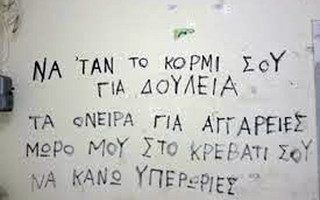 ΝΑ 'ΤΑΝ ΤΟ ΚΟΡΜΙ ΣΟΥ
ΓΙΑ ΔΟΥΛΕΙΑ
ΤΑ ΟΝΕΙΡΑ ΓΙΑ ΑΓΓΑΡΕΙΕΣ
ΜΩΡΟ ΜΟΥ ΣΤΟ ΚΡΕΒΑΤΙ ΣΟΥ
ΝΑ ΚΑΝΩ ΥΠΕΡΩΡΙΕΣ